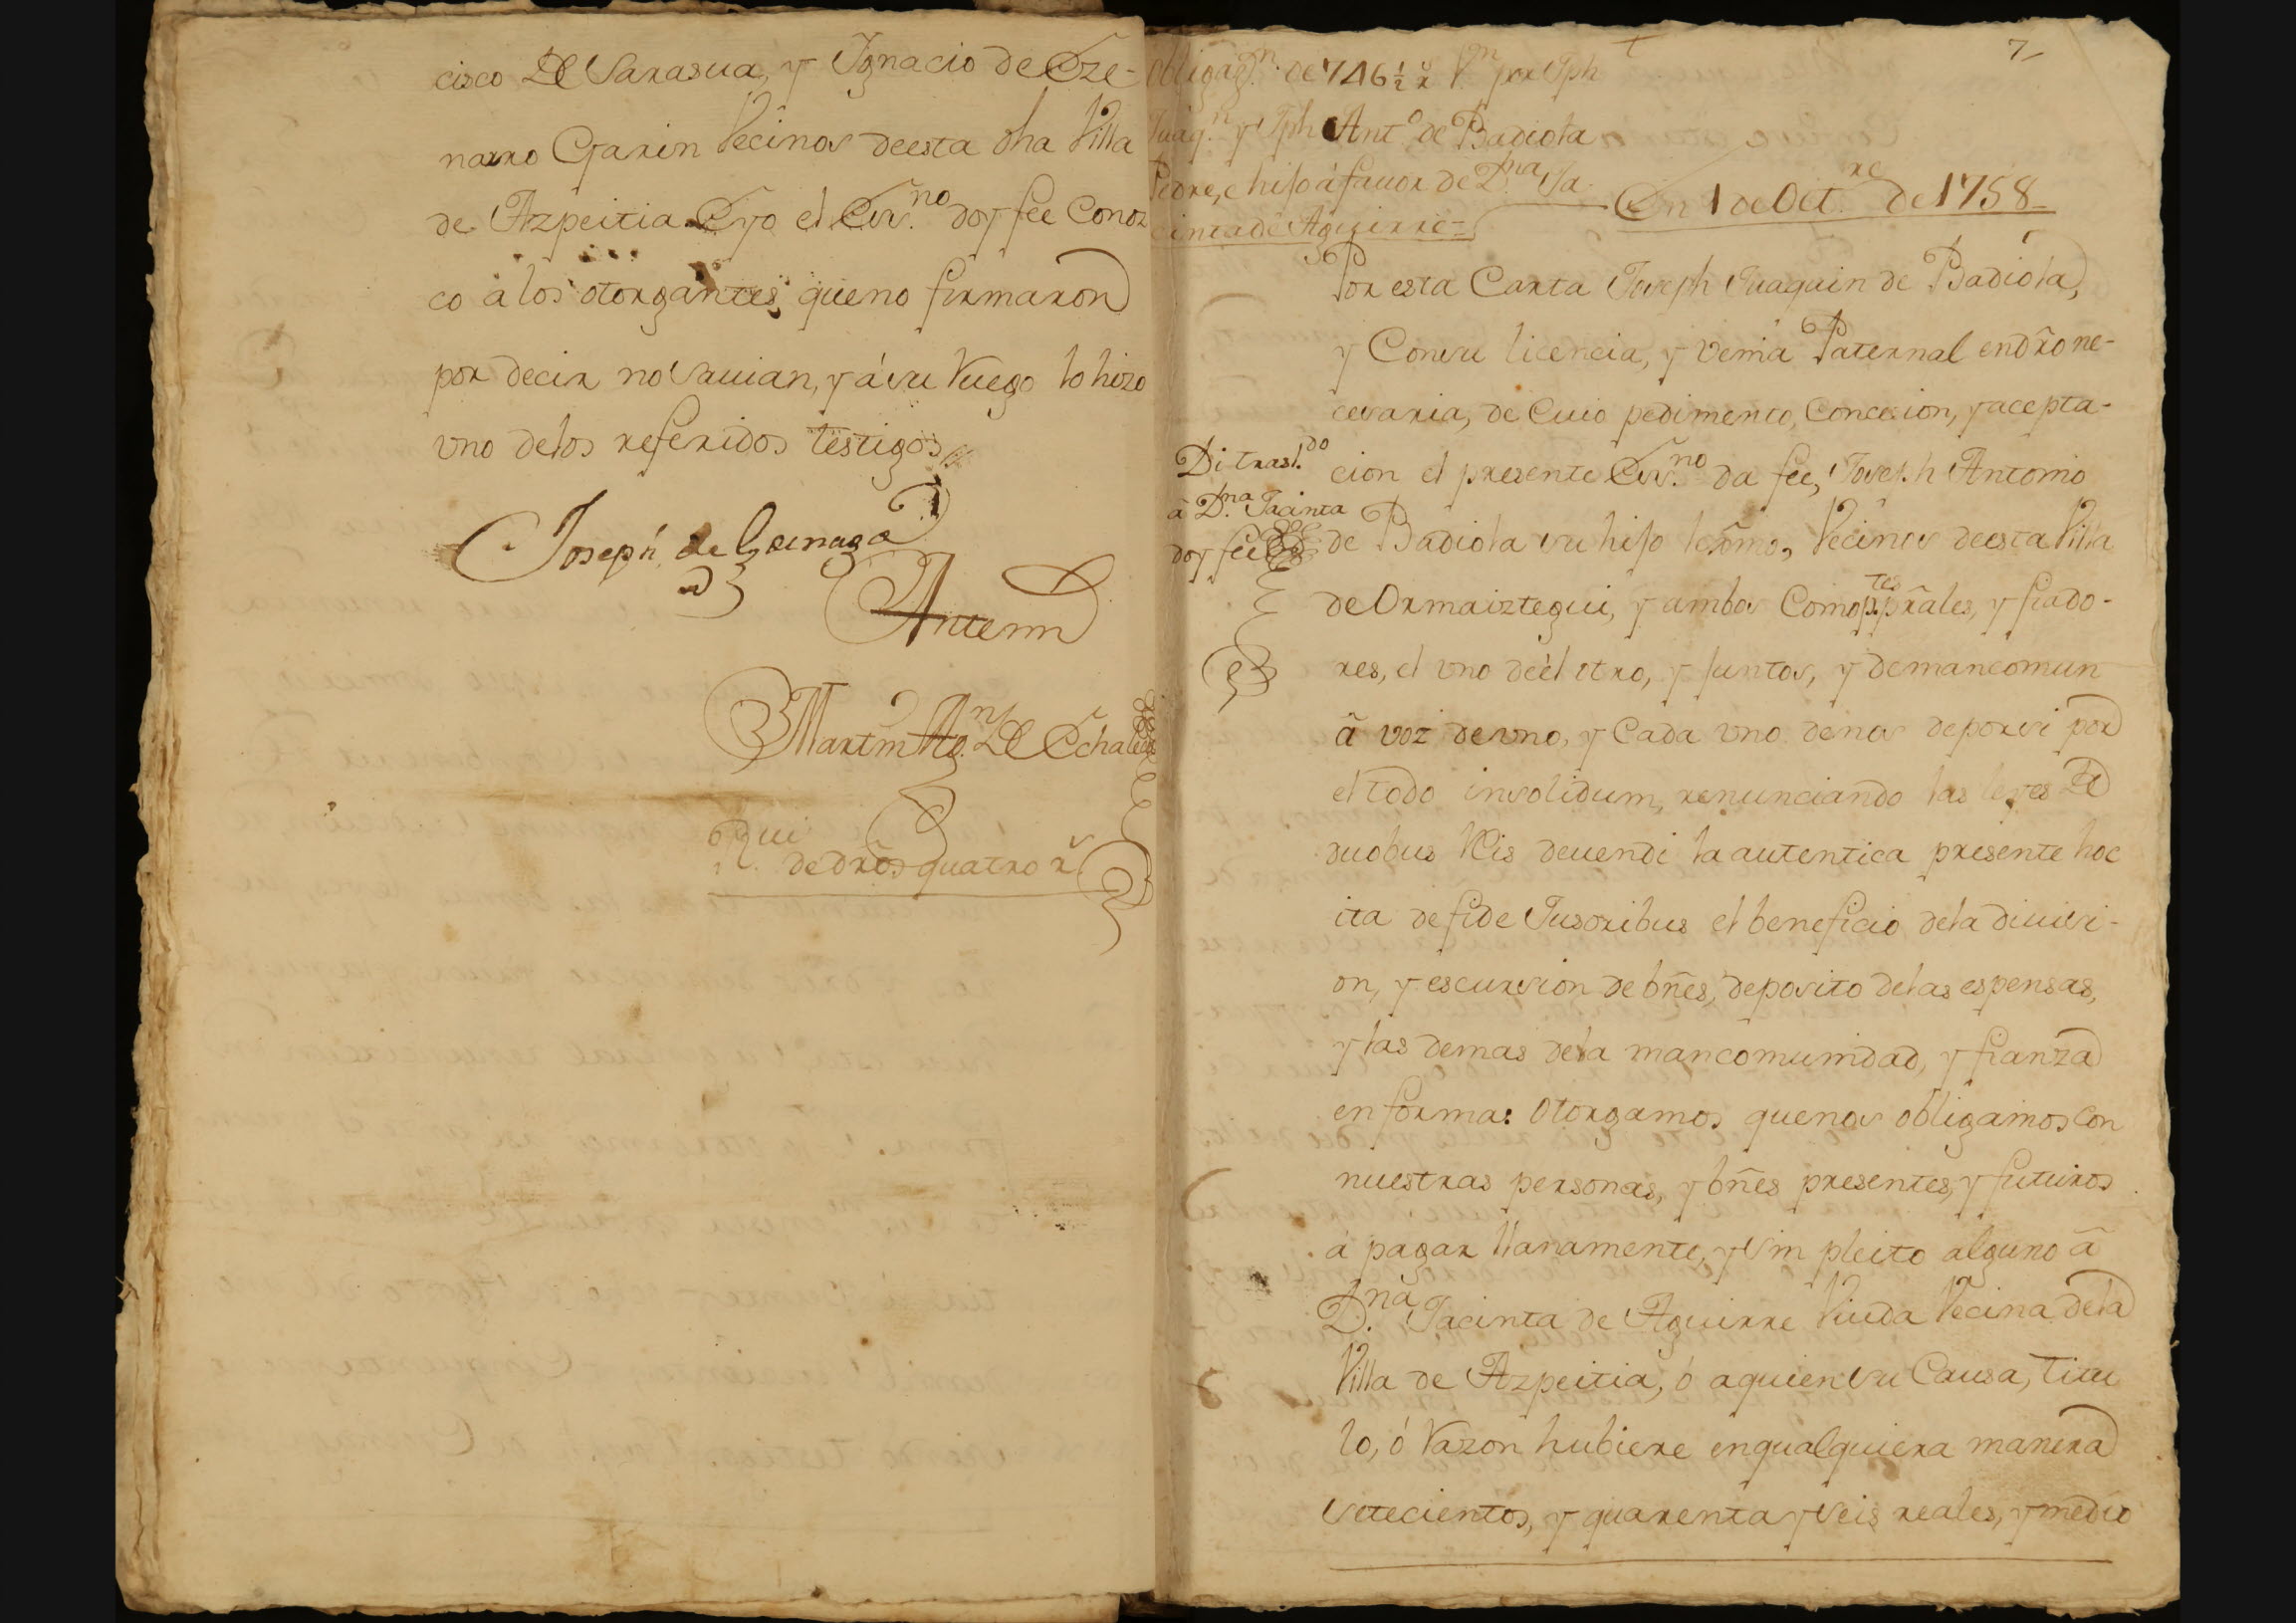 cisco de Sarasua, y Ignacio de Eze-
narro Garin Vecinos deesta dha Villa
de Azpeitia Eyo el Essno. doy fee Conoz
co a los otorgantes, queno firmaron
por decir no Sauian, y ásu Ruego lo hizo
vno delos referidos testigos
Joseph de Goenaga
Antemi
Martin Agn. de Echaue
dedros quatro rs
7
Obligazn. de 746 1/2 rs Vn. por Jph
Juaqn. y Jph Anto de Badiola
Padre, e hijo á fauor de Dna. Ja
cinta de Aguirre =
En 1 de Octre. de 1758
Por esta Carta Joseph Juaquin de Badiola,
y Consu licencia, y venia Paternal endro ne-
cesaria, de Cuio pedimento, Concesion, yacepta-
cion el presente Essno. da fee, Joseph Antonio
de Badiola su hijo lexmo, Vecinos deesta Villa
de Ormaiztegui, y ambos Como ptes. prales, y fiado-
res, el vno deél otro, y Juntos, y demancomun
â voz devno, y Cada vno denos deporsi por
el todo insolidum, renunciando las leyes de
duobus Reis deuendi la autentica presente hoc
ita defide Jusoribus el beneficio dela diuisi-
on, y escursion de bñes, deposito delas espensas,
y las demas dela mancomunidad, y fianza
en forma: Otorgamos quenos obligamos con
nuestras personas, ybñes presentes, y futuros
á pagar llanamente, ysin pleito alguno â
Dna. Jacinta de Aguirre Viuda Vecina dela
Villa de Azpeitia, ó aquien su Causa, Titu
lo, ó Razon hubiere enqualquiera manera
Setecientos, y quarenta yseis reales, ymedio
Di trasldo.
â Dna. Jacinta
doy fee